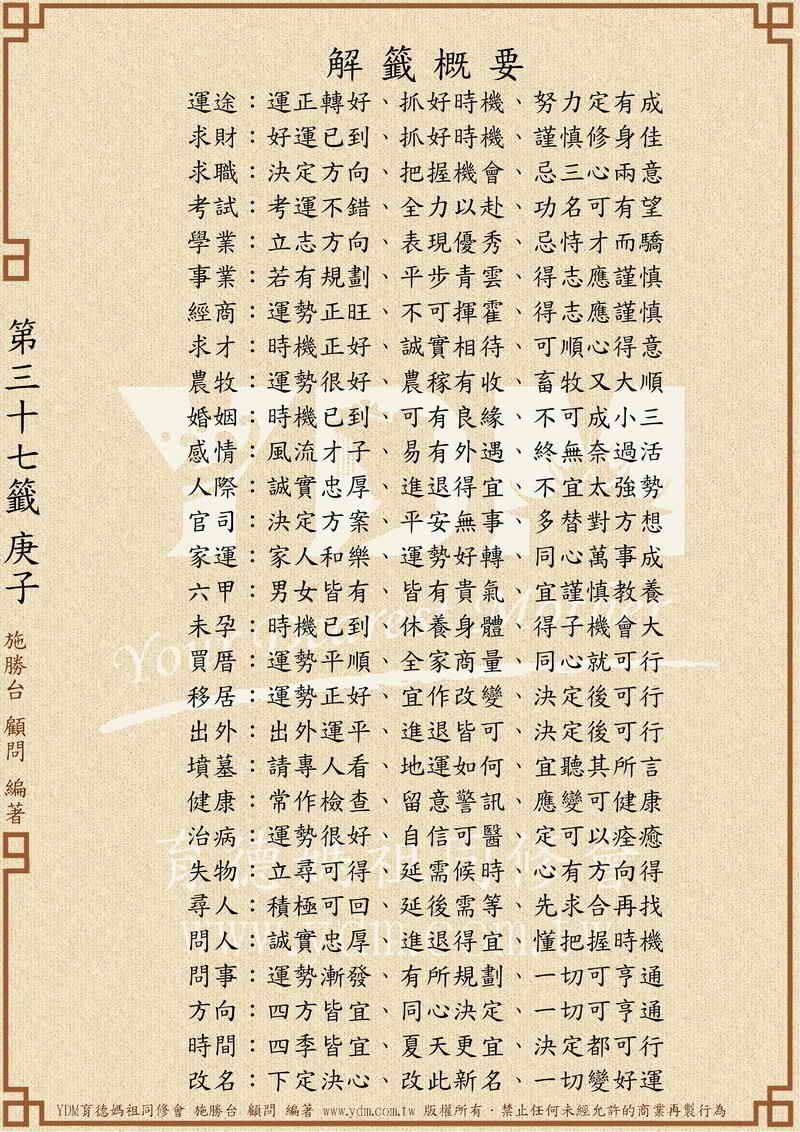 解籤概要
運途：運正轉好、抓好時機、努力定有成
求財：好運已到、抓好時機、謹慎修身佳
求職：決定方向、把握機會、忌三心兩意
考試：考運不錯、全力以赴、功名可有望
學業：立志方向、表現優秀、忌恃才而驕
事業：若有規劃、平步青雲、得志應謹慎
經商：運勢正旺、不可揮霍、得志應謹慎
求才：時機正好、誠實相待、可順心得意
農牧：運勢很好、農稼有收、畜牧又大順
婚姻：時機已到、可有良緣、不可成小三
感情：風流才子、易有外遇、終無奈過活
人際：誠實忠厚、進退得宜、不宜太強勢
官司：決定方案、平安無事、多替對方想
家運：家人和樂、運勢好轉、同心萬事成
六甲：男女皆有、皆有貴氣、宜謹慎教養
未孕：時機已到、休養身體、得子機會大
買厝：運勢平順、全家商量、同心就可行
移居：運勢正好、宜作改變、決定後可行
出外：出外運平、進退皆可、決定後可行
墳墓：請專人看、地運如何、宜聽其所言
健康：常作檢查、留意警訊、應變可健康
治病：運勢很好、自信可醫、定可以痊癒
失物：立尋可得、延需候時、心有方向得
尋人：積極可回、延後需等、先求合再找
問人：誠實忠厚、進退得宜、懂把握時機
問事：運勢漸發、有所規劃、一切可亨通
方向：四方皆宜、同心決定、一切可亨通
時間：四季皆宜、夏天更宜、決定都可行
改名：下定決心、改此新名、一切變好運
第三十七籤 庚子
施勝台 顧問 編著
YDM
育德媽祖同修會
YDM育德媽祖同修會 施勝台 顧問 編著 www.ydm.com.tw 版權所有．禁止任何未經允許的商業再製行為